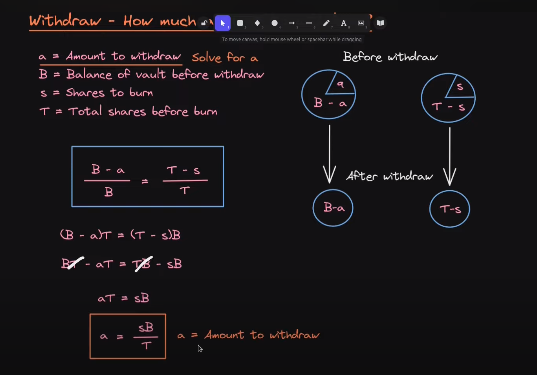 Withdraw - How much
To move canvas, hold mouse wheel or spacebar while dragging
a = Amount to withdraw Solve for a
B = Balance of vault before withdraw
s = Shares to burn
T = Total shares before burn
Before withdraw
a
B - a
s
T - s
After withdraw
B-a
T-s
B - a
B
=
T - s
T
(B - a)T = (T - s)B
BT - aT = TB - sB
aT = sB
a = sB
T
a = Amount to withdraw